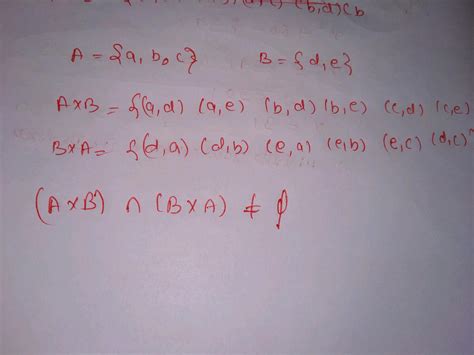 (b,d) (b
A = {a, b, c} B = {d, e}
A×B = {(a,d) (a,e) (b,d) (b,e) (c,d) (c,e)
B×A = {(d,a) (d,b) (e,a) (e,b) (e,c) (d,c)
(A×B) ∩ (B×A) ≠ ϕ